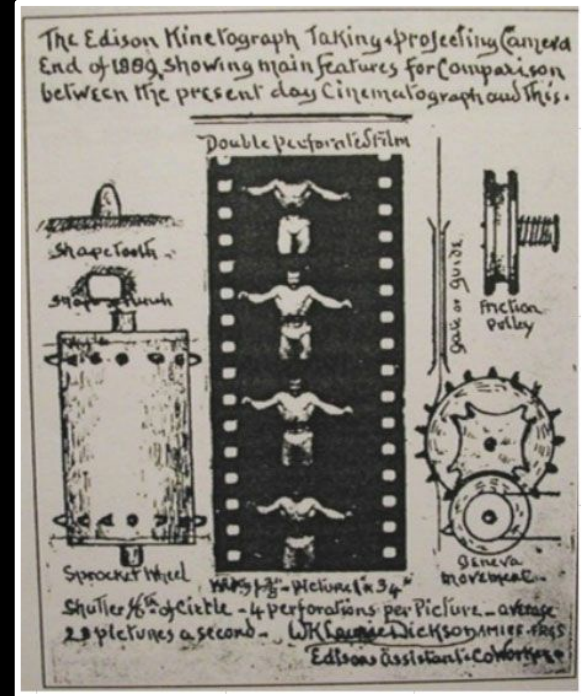 The Edison Kinetograph Taking & projecting Camera
End of 1889, Showing main features for Comparison
between the present day Cinematograph and This.
Double perforated Film
Shape Tooth
Gate or guide
Friction
Pulley
Sprocket Wheel
Geneva
movement
picture 1" x 3/4"
Shutter of Circle - 4 perforations per Picture - average
pictures a second - WK Laurie Dickson AMIEE. FRGS
Edisons assistant & CoWorker